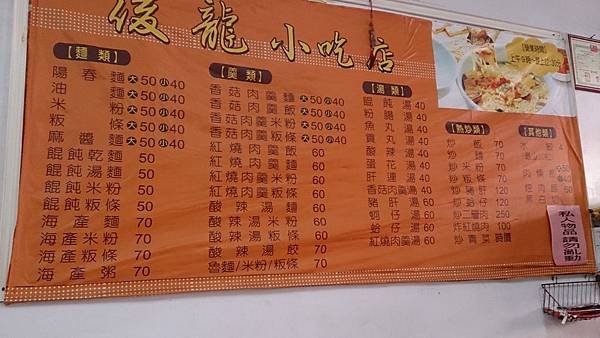 後龍小吃店
【營業時間】
【麵類】
陽春麵 大50 小40
油麵 大50 小40
米粉 大50 小40
粄條 大50 小40
麻醬麵 大50 小40
餛飩乾麵 50
餛飩湯麵 50
餛飩米粉 50
餛飩粄條 50
海產麵 70
海產米粉 70
海產粥 70
【羹類】
香菇肉羹麵 大50 小40
香菇肉羹飯 大50 小40
香菇肉羹米粉 大50 小40
香菇肉羹粄條 大50 小40
紅燒肉羹飯 60
紅燒肉羹麵 60
紅燒肉羹米粉 60
紅燒肉羹粄條 60
酸辣湯麵 60
酸辣湯米粉 60
酸辣湯粄條 60
酸辣湯餃 70
魯麵/米粉/粄條 70
【湯類】
餛飩湯 40
粉腸湯 40
魚丸湯 40
貢丸湯 40
酸辣湯 40
蛋花湯 40
肝連湯 40
香菇肉羹湯 40
豬肝湯 60
蚵仔湯 60
蛤仔湯 60
紅燒肉羹湯 60
【熱炒類】
炒飯 70
炒麵 70
炒米粉 70
炒粄條 70
炒豬肝 120
炒豬肚 120
炒三層肉 250
炸紅燒肉 100
炒青菜 時價
【其他類】
水餃 4
私人物品請勿亂動